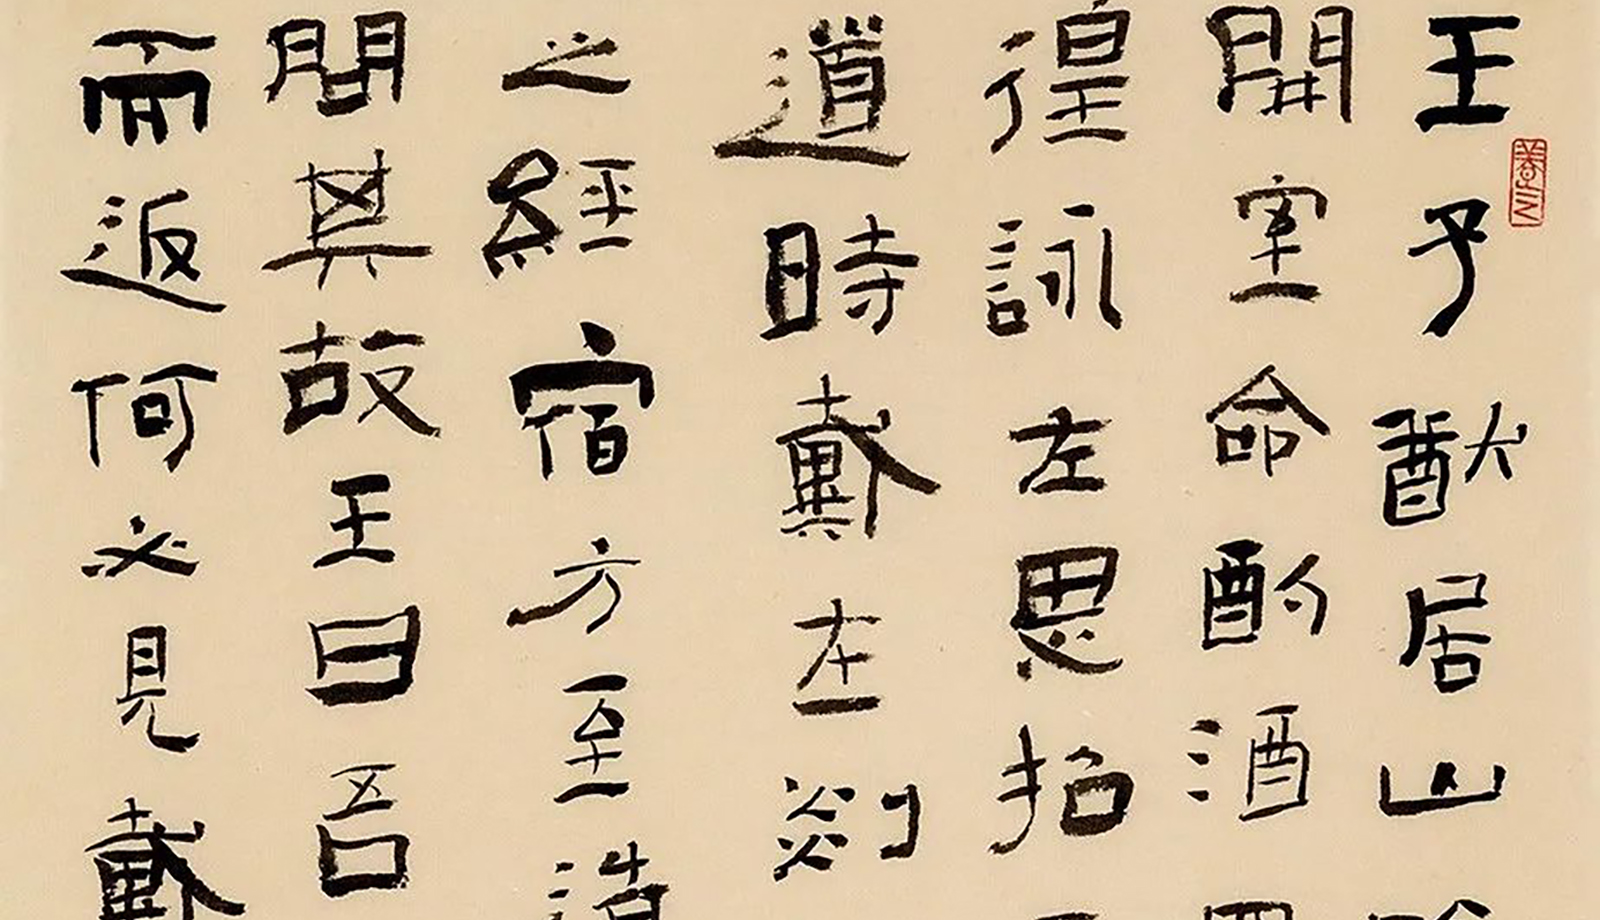 王子猷居山
開室命酌酒
徨詠左思招
道時戴在剡
之經宿方至造
問其故王曰吾
而返何必見戴